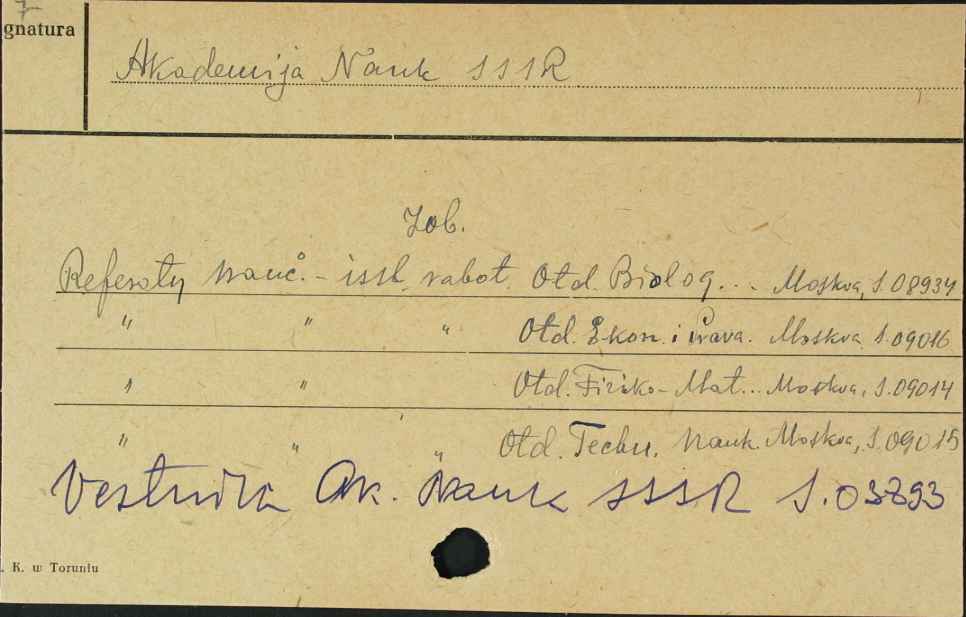 7
gnatura
Akademija Nauk SSSR
Zob.
Referaty nauč.-issl. rabot. Otd. Biolog... Moskva, S.08934
" " " Otd. Ekon. i Prava. Moskva S.09016
" " Otd. Fiziko-Mat... Moskva, S.09014
" " " Otd. Techn. Nauk. Moskva, S.09015
Vestnik Ak. Nauk SSSR S.03793
. K. w Toruniu